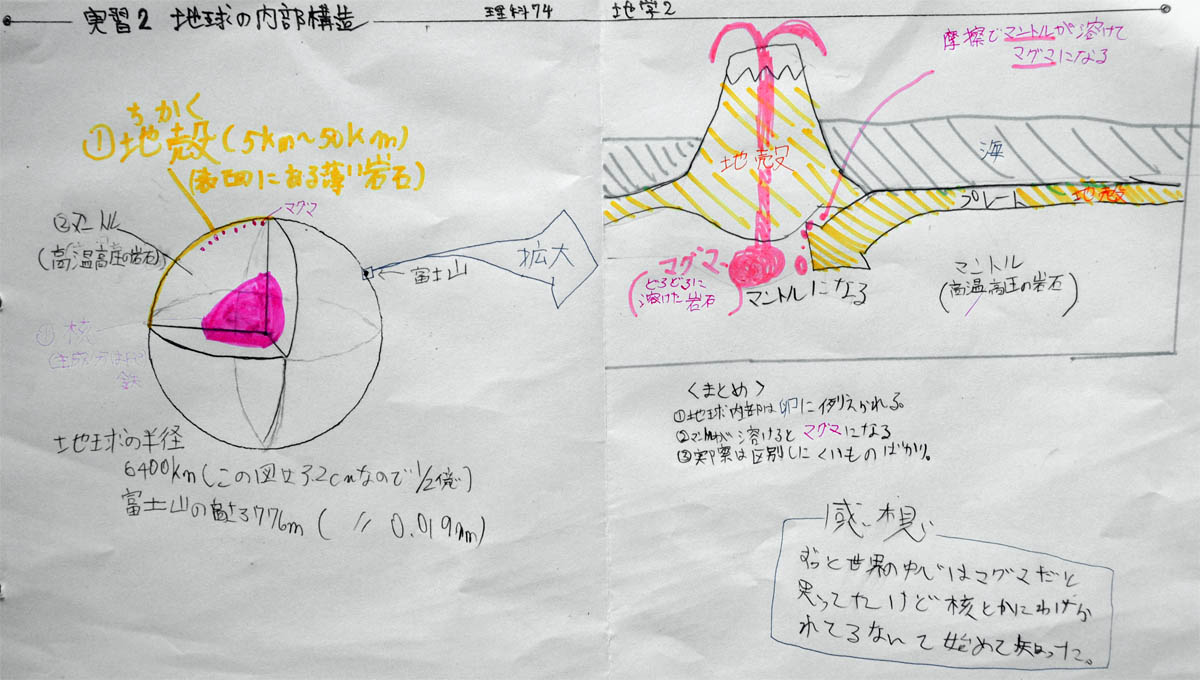 実習2 地球の内部構造
理科74
地学2
ちかく
①地殻(5km~50km)
(表面にある薄い岩石)
マグマ
②マントル
(高温高圧の岩石)
核
鉄
富士山
拡大
地球の半径
6400km(この図は3.2cmなので1/2億)
富士山の高さ3776m( 〃 0.019mm)
摩擦でマントルが溶けて
マグマになる
地殻
海
プレート
地殻
マグマ
(どろどろに
溶けた岩石)
マントルになる
マントル
(高温高圧の岩石)
<まとめ>
①地球内部は卵に例えられる。
②マントルが溶けるとマグマになる
③実際は区別しにくいものばかり。
感想
ずっと世界の中心はマグマだと
思ってたけど核とかにわけら
れてるなんて始めて知った。